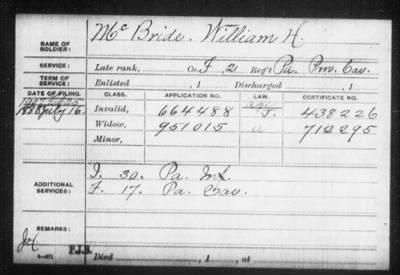 NAME OF SOLDIER: Mc Bride. William H.
SERVICE: Late rank, Co. F, 2 Reg't Pa. Prov. Cav.
TERM OF SERVICE: Enlisted , 1 Discharged , 1
DATE OF FILING. CLASS. APPLICATION NO. LAW. CERTIFICATE NO.
1888 July 16. Invalid, 664488 438226
Widow, 951015 712295
Minor,
ADDITIONAL SERVICES: I. 30. Pa. Inf.
F. 17. Pa. Cav.
REMARKS:
P.J.B. Died , 1 , at